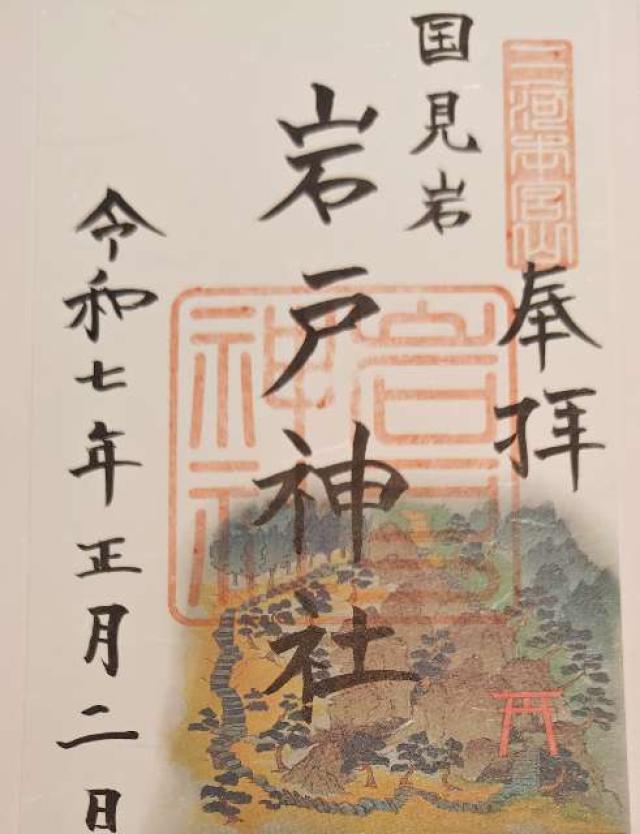 三河本宮山
奉拝
国見岩
岩戸神社
岩戸神社
令和七年正月二日